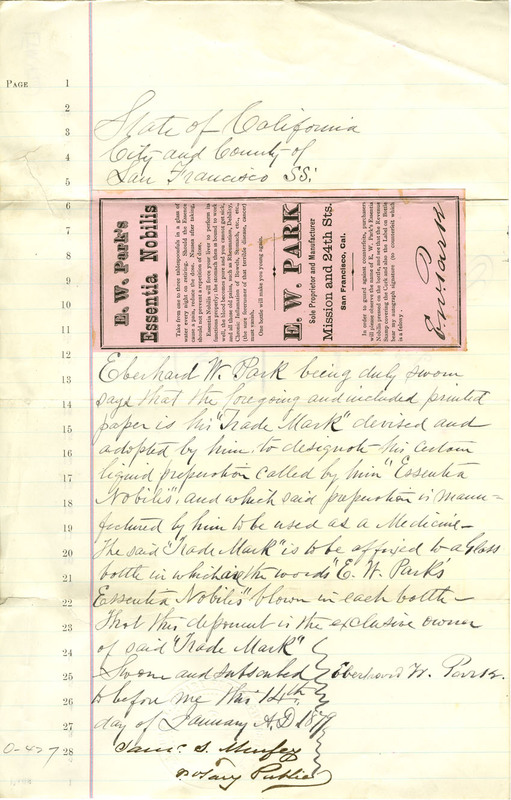 PAGE
1
2
3
4
5
6
7
8
9
10
11
12
13
14
15
16
17
18
19
20
21
22
23
24
25
26
27
28
State of California
City and County of
San Francisco SS:
E. W. Park's
Essentia Nobilis
Take from one to three tablespoonfuls in a glass of
water every night on retiring. Should the Essence
cause a pain, reduce the dose. Nausea after taking,
should not prevent a repetition of dose.
Essentia Nobilis will force your liver to perform its
functions properly, the stomach then is bound to work
well, the blood becomes pure and you cannot get sick,
and all those old pains, such as Rheumatism, Debility,
Chronic Inflammation of Bowels, Stomach, etc., etc.,
(the sure forerunner of that terrible disease, cancer)
must vanish.
One bottle will make you young again.
E. W. PARK
Sole Proprietor and Manufacturer
Mission and 24th Sts.
San Francisco, Cal.
In order to guard against counterfeits, purchasers
will please observe the name of E. W. Park's Essentia
Nobilis pressed on the bottle, and see that the Revenue
Stamp covering the Cork and also the Label on Bottle
bear my autograph signature (to counterfeit which
is a felony).
E. W. Park
Eberhard W. Park being duly sworn
says that the foregoing and included printed
paper is his "Trade Mark" devised and
adopted by him, to designate his certain
liquid preparation called by him "Essentia
Nobilis", and which said preparation is manu=
factured by him to be used as a Medicine—
The said "Trade Mark" is to be affixed to a Glass
bottle in which are the words "E. W. Park's
Essentia Nobilis" blown in each bottle—
That this deponent is the exclusive owner
of said "Trade Mark"
Sworn and subscribed
to before me this 14th
day of January A.D. 1879
Eberhard W. Park.
Saml. S. Murfey
Notary Public
0-427